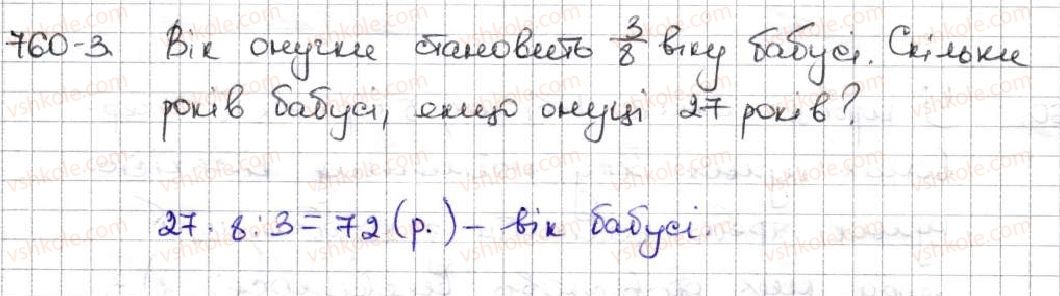 760-3. Вік онучки становить 3/8 віку бабусі. Скільки
років бабусі, якщо онуці 27 років?
27 · 8 : 3 = 72 (р.) – вік бабусі.
vshkole.com